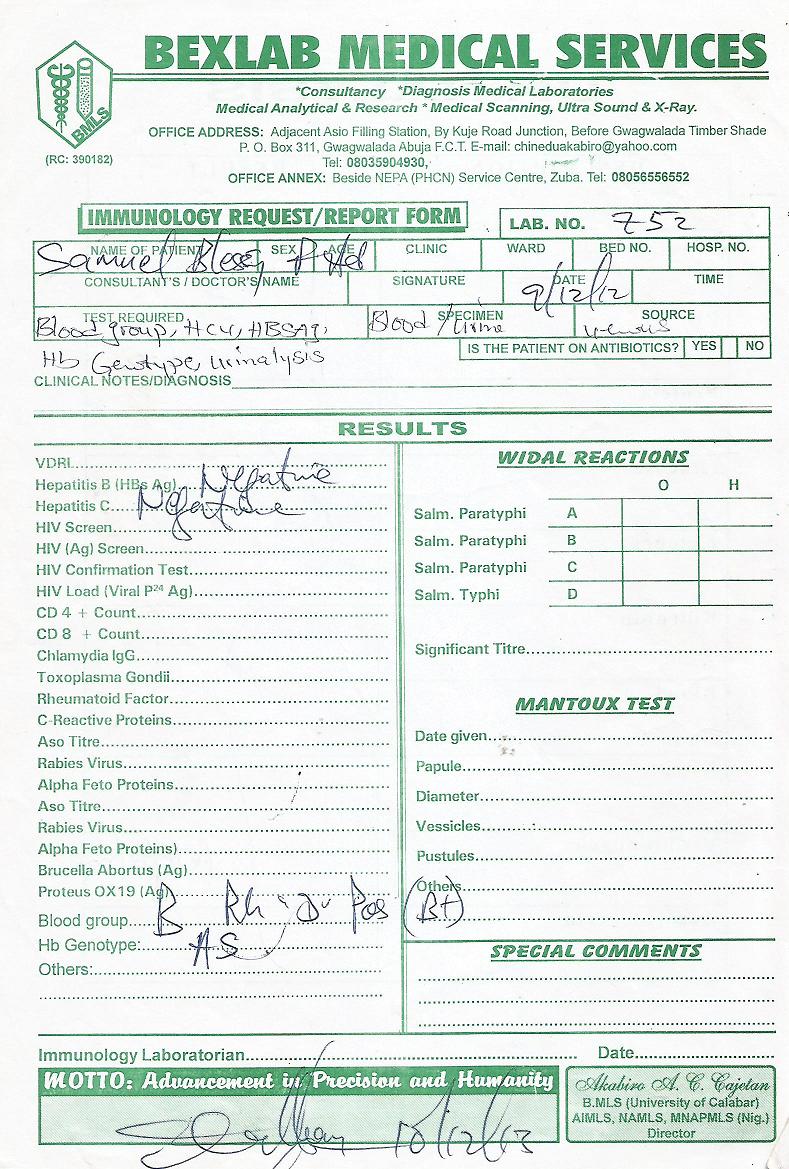 BEXLAB MEDICAL SERVICES
BMLS
(RC: 390182)
*Consultancy *Diagnosis Medical Laboratories
Medical Analytical & Research * Medical Scanning, Ultra Sound & X-Ray.
OFFICE ADDRESS: Adjacent Asio Filling Station, By Kuje Road Junction, Before Gwagwalada Timber Shade
P. O. Box 311, Gwagwalada Abuja F.C.T. E-mail: chineduakabiro@yahoo.com
Tel: 08035904930,
OFFICE ANNEX: Beside NEPA (PHCN) Service Centre, Zuba. Tel: 08056556552
IMMUNOLOGY REQUEST/REPORT FORM
LAB. NO. 752
NAME OF PATIENT SEX AGE CLINIC WARD BED NO. HOSP. NO.
Samuel
CONSULTANT'S / DOCTOR'S NAME SIGNATURE DATE TIME
9/12/12
TEST REQUIRED SPECIMEN SOURCE
Blood group, HCV, HBSAg, Blood / Urine
Hb Genotype, Urinalysis
IS THE PATIENT ON ANTIBIOTICS? YES NO
CLINICAL NOTES/DIAGNOSIS
RESULTS
VDRL
Hepatitis B (HBs Ag) Negative
Hepatitis C Negative
HIV Screen
HIV (Ag) Screen
HIV Confirmation Test
HIV Load (Viral P24 Ag)
CD 4 + Count
CD 8 + Count
Chlamydia IgG
Toxoplasma Gondii
Rheumatoid Factor
C-Reactive Proteins
Aso Titre
Rabies Virus
Alpha Feto Proteins
Aso Titre
Rabies Virus
Alpha Feto Proteins)
Brucella Abortus (Ag)
Proteus OX19 (Ag)
Blood group B Rh "D" Pos (B+)
Hb Genotype: AS
Others:
WIDAL REACTIONS
O H
Salm. Paratyphi A
Salm. Paratyphi B
Salm. Paratyphi C
Salm. Typhi D
Significant Titre
MANTOUX TEST
Date given
Papule
Diameter
Vessicles
Pustules
Others
SPECIAL COMMENTS
Immunology Laboratorian Date
MOTTO: Advancement in Precision and Humanity
10/12/13
Akabiro A. C. Cajetan
B.MLS (University of Calabar)
AIMLS, NAMLS, MNAPMLS (Nig.)
Director